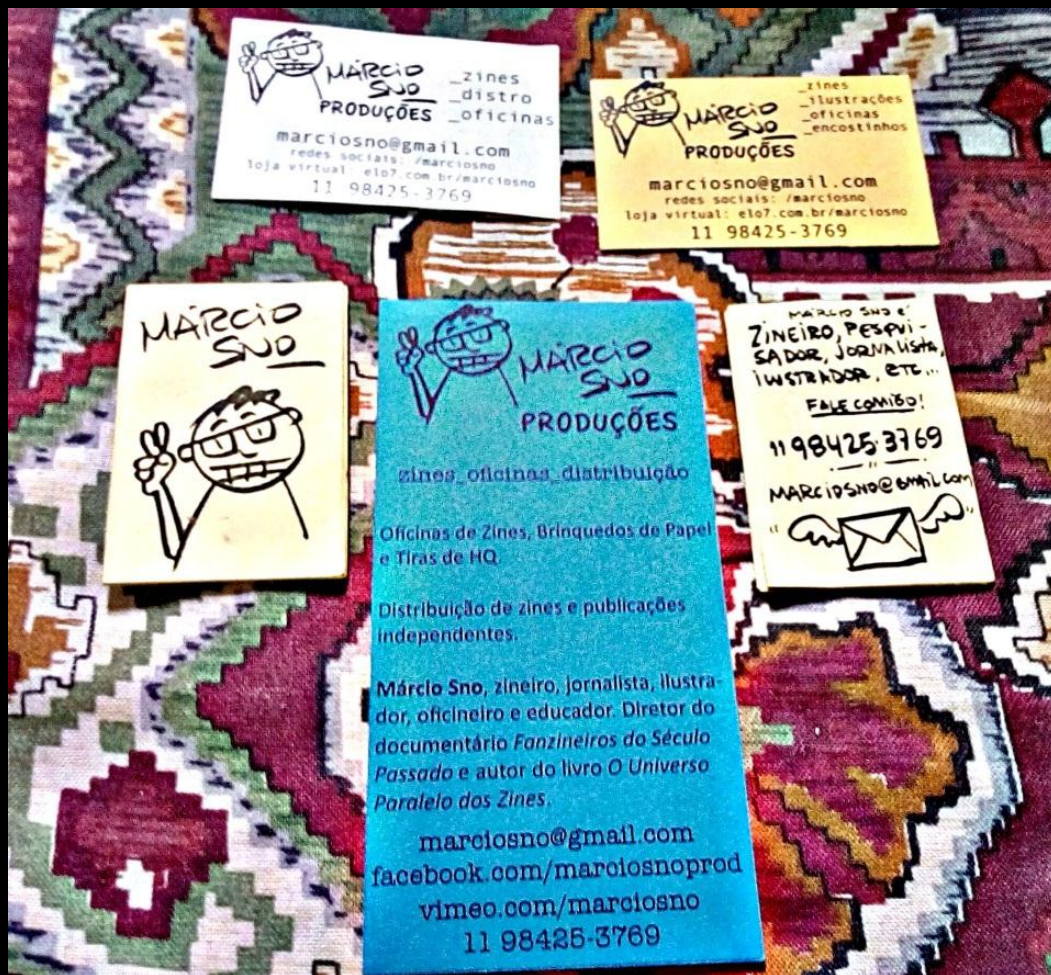 MÁRCIO
SNO
PRODUÇÕES
_zines
_distro
_oficinas
marciosno@gmail.com
redes sociais: /marciosno
loja virtual: elo7.com.br/marciosno
11 98425-3769
MÁRCIO
SNO
PRODUÇÕES
_zines
_ilustrações
_oficinas
_encostinhos
marciosno@gmail.com
redes sociais: /marciosno
loja virtual: elo7.com.br/marciosno
11 98425-3769
MÁRCIO
SNO
MÁRCIO
SNO
PRODUÇÕES
zines_oficinas_distribuição
Oficinas de Zines, Brinquedos de Papel
e Tiras de HQ.
Distribuição de zines e publicações
independentes.
Márcio Sno, zineiro, jornalista, ilustra-
dor, oficineiro e educador. Diretor do
documentário Fanzineiros do Século
Passado e autor do livro O Universo
Paralelo dos Zines.
marciosno@gmail.com
facebook.com/marciosnoprod
vimeo.com/marciosno
11 98425-3769
MÁRCIO SNO É
ZINEIRO, PESQUI-
SADOR, JORNALISTA,
ILUSTRADOR, ETC...
FALE COMIGO!
11 98425-3769
MARCIOSNO@GMAIL.COM